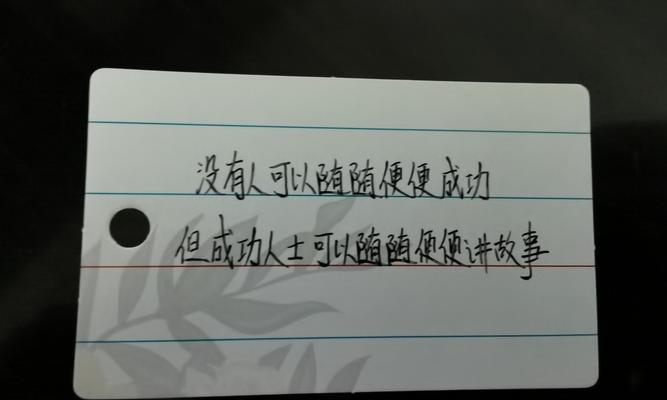 没有人可以随随便便成功
但成功人士可以随随便便讲故事